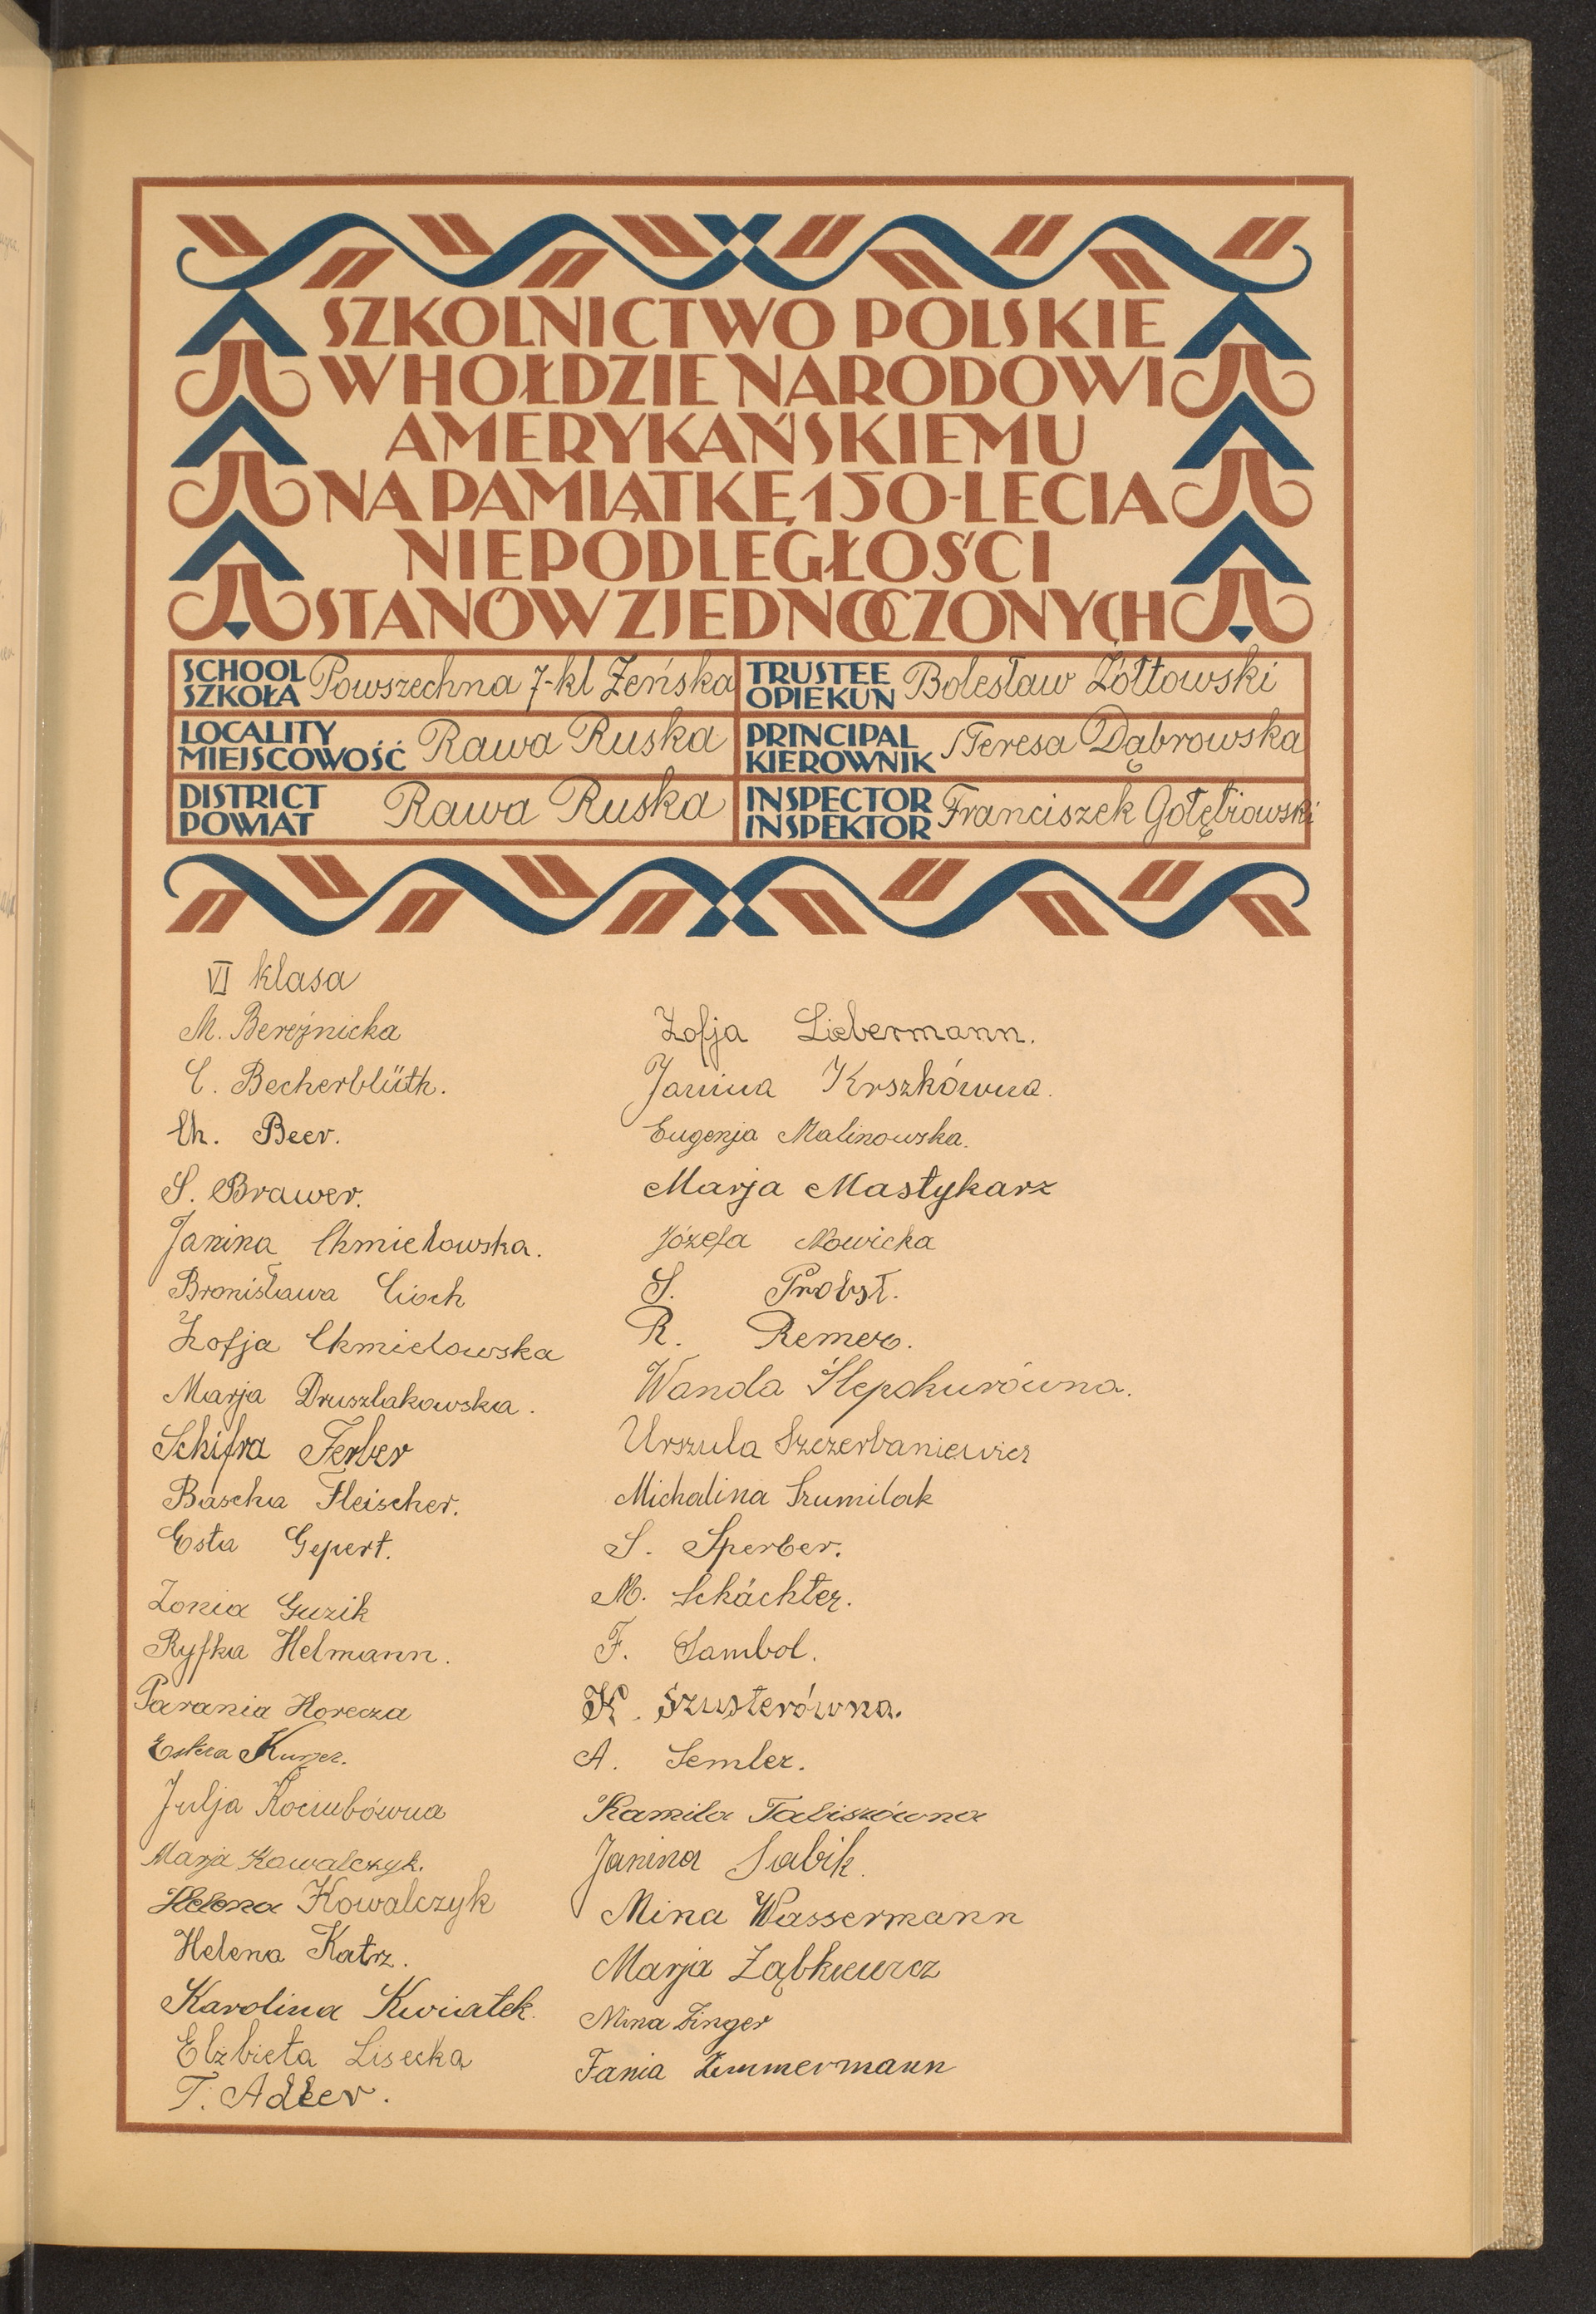 SZKOLNICTWO POLSKIE
W HOŁDZIE NARODOWI
AMERYKAŃSKIEMU
NA PAMIĄTKĘ 150-LECIA
NIEPODLEGŁOŚCI
STANÓW ZJEDNOCZONYCH
SCHOOL
SZKOŁA Powszechna 7-kl Żeńska
TRUSTEE
OPIEKUN Bolesław Żółtowski
LOCALITY
MIEJSCOWOŚĆ Rawa Ruska
PRINCIPAL
KIEROWNIK Teresa Dąbrowska
DISTRICT
POWIAT Rawa Ruska
INSPECTOR
INSPEKTOR Franciszek Gołębiowski
VI klasa
M. Bereźnicka
C. Becherblüth.
Ch. Beer.
S. Brawer.
Janina Chmielowska.
Bronisława Cioch
Zofja Chmielowska
Marja Druszlakowska.
Schifra Ferber
Bascha Fleischer.
Esta Gepert.
Zonia Guzik
Ryfka Helmann.
Parania Horecza
Estera
Julja Kociubówna
Marja Kowalczyk.
Helena Kowalczyk
Helena Katrz.
Karolina Kwiatek.
Elżbieta Lisecka
T. Adler.
Zofja Liebermann.
Janina Krszkówna.
Eugenja Malinowska.
Marja Mastykarz
Józefa Nowicka
S. Probst.
R. Remer.
Wanda Ślepokurówna.
Urszula Szczerbaniewicz
Michalina Szumilak
S. Sperber.
M. Schächter.
F. Sambol.
K. Szusterówna.
A. Semler.
Kamila Tabiszówna
Janina Sabik.
Mina Wassermann
Marja Ząbkiewicz
Mina Zinger
Fania Zimmermann